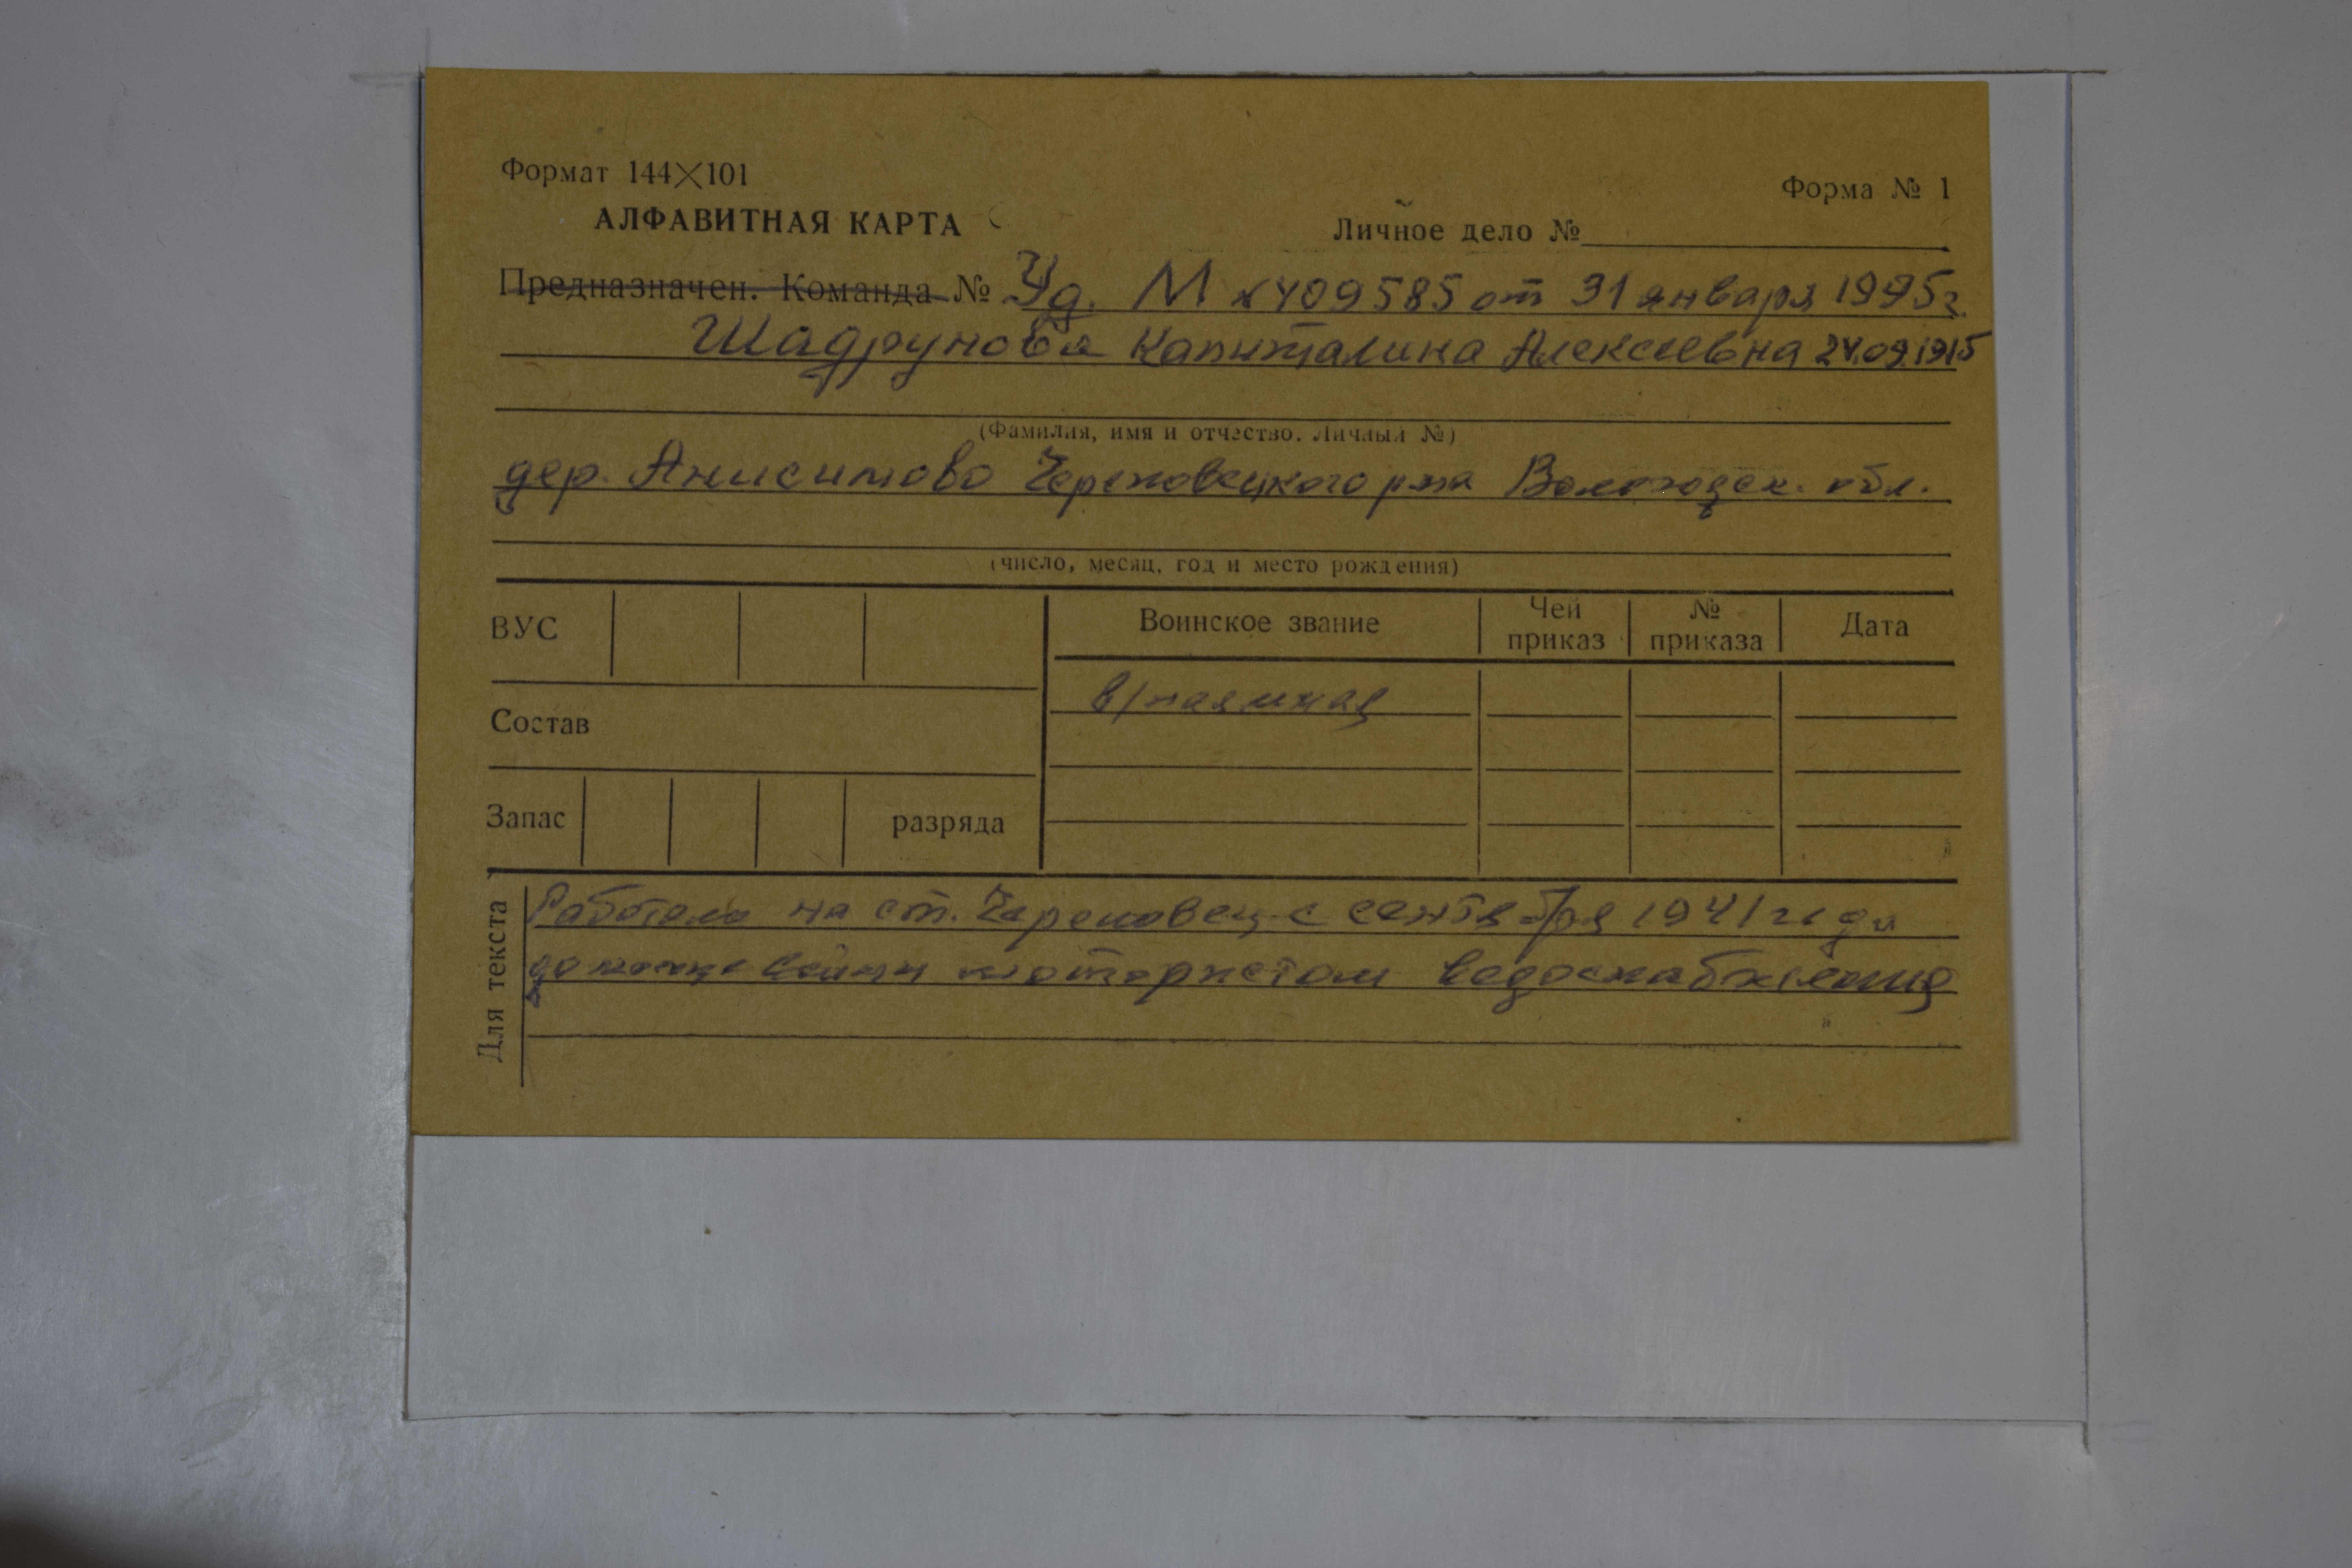 Формат 144×101
Форма № 1
АЛФАВИТНАЯ КАРТА
Личное дело №
Предназначен. Команда № Уд. М № 409585 от 31 января 1995г.
Шадрунова Капиталина Алексеевна 24.09.1915
(Фамилия, имя и отчество. Личный №)
дер. Анисимово Череповецкого р-на Вологодск. обл.
(число, месяц, год и место рождения)
ВУС
Воинское звание
Чей приказ
№ приказа
Дата
Состав
Запас
разряда
Для текста
Работала на ст. Череповец с сентября 1941 года
до конца войны мотористом водоснабжения